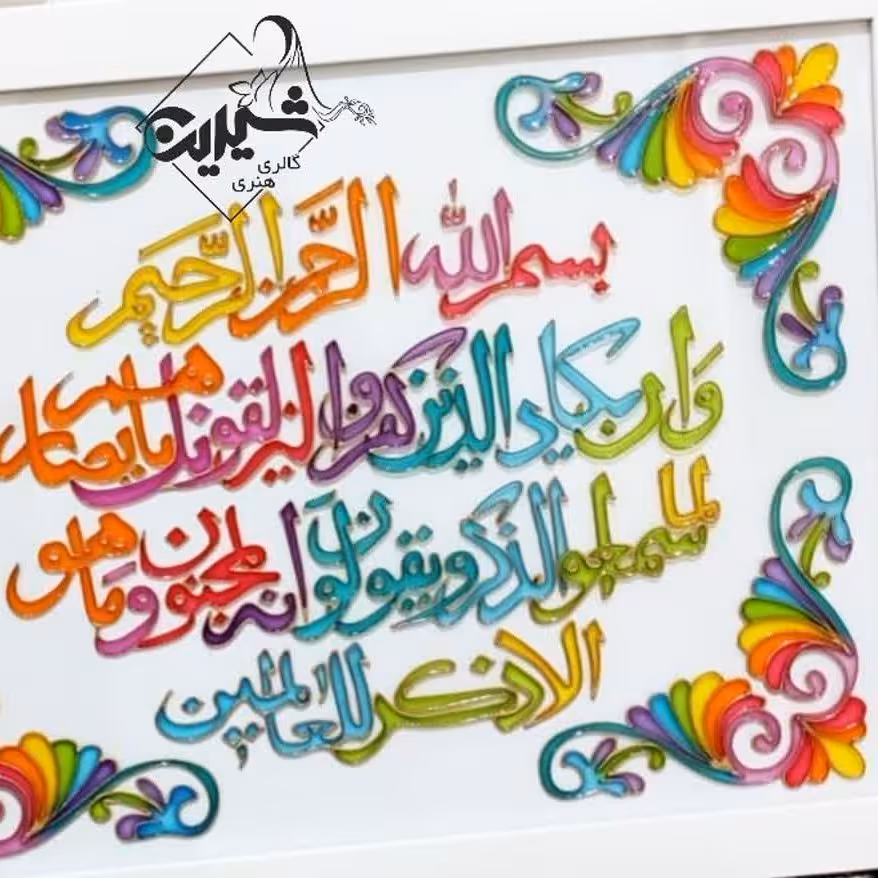 شیراین
گالری
هنری
بسم الله الرحمن الرحیم
وان یکاد الذین کفروا لیزلقونک بابصارهم
لما سمعوا الذکر و یقولون انه لمجنون و ما هو
الا ذکر للعالمین